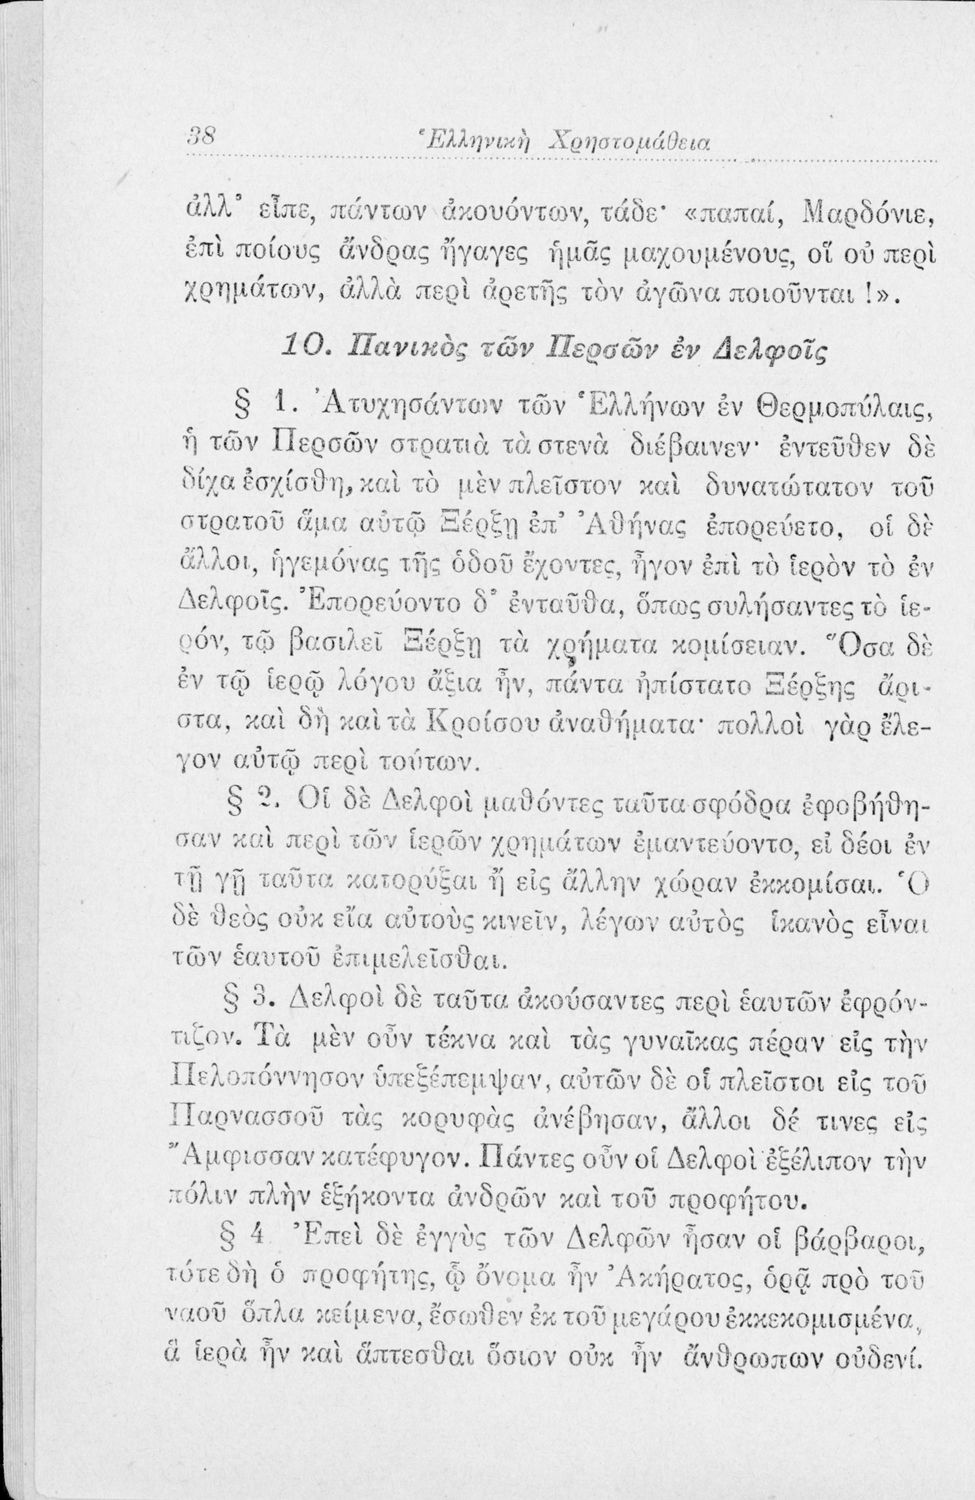 38 Ἑλληνικὴ Χρηστομάθεια
ἀλλ' εἶπε, πάντων ἀκουόντων, τάδε· «παπαί, Μαρδόνιε,
ἐπὶ ποίους ἄνδρας ἤγαγες ἡμᾶς μαχουμένους, οἵ οὐ περὶ
χρημάτων, ἀλλὰ περὶ ἀρετῆς τὸν ἀγῶνα ποιοῦνται !».
10. Πανικὸς τῶν Περσῶν ἐν Δελφοῖς
§ 1. Ἀτυχησάντων τῶν Ἑλλήνων ἐν Θερμοπύλαις,
ἡ τῶν Περσῶν στρατιὰ τὰ στενὰ διέβαινεν· ἐντεῦθεν δὲ
δίχα ἐσχίσθη, καὶ τὸ μὲν πλεῖστον καὶ δυνατώτατον τοῦ
στρατοῦ ἅμα αὐτῷ Ξέρξῃ ἐπ' Ἀθήνας ἐπορεύετο, οἱ δὲ
ἄλλοι, ἡγεμόνας τῆς ὁδοῦ ἔχοντες, ἦγον ἐπὶ τὸ ἱερὸν τὸ ἐν
Δελφοῖς. Ἐπορεύοντο δ' ἐνταῦθα, ὅπως συλήσαντες τὸ ἱε-
ρόν, τῷ βασιλεῖ Ξέρξῃ τὰ χρήματα κομίσειαν. Ὅσα δὲ
ἐν τῷ ἱερῷ λόγου ἄξια ἦν, πάντα ἠπίστατο Ξέρξης ἄρι-
στα, καὶ δὴ καὶ τὰ Κροίσου ἀναθήματα· πολλοὶ γὰρ ἔλε-
γον αὐτῷ περὶ τούτων.
§ 2. Οἱ δὲ Δελφοὶ μαθόντες ταῦτα σφόδρα ἐφοβήθη-
σαν καὶ περὶ τῶν ἱερῶν χρημάτων ἐμαντεύοντο, εἰ δέοι ἐν
τῇ γῇ ταῦτα κατορύξαι ἤ εἰς ἄλλην χώραν ἐκκομίσαι. Ὁ
δὲ θεὸς οὐκ εἴα αὐτοὺς κινεῖν, λέγων αὐτὸς ἱκανὸς εἶναι
τῶν ἑαυτοῦ ἐπιμελεῖσθαι.
§ 3. Δελφοὶ δὲ ταῦτα ἀκούσαντες περὶ ἑαυτῶν ἐφρόν-
τιζον. Τὰ μὲν οὖν τέκνα καὶ τὰς γυναῖκας πέραν εἰς τὴν
Πελοπόννησον ὑπεξέπεμψαν, αὐτῶν δὲ οἱ πλεῖστοι εἰς τοῦ
Παρνασσοῦ τὰς κορυφὰς ἀνέβησαν, ἄλλοι δέ τινες εἰς
Ἄμφισσαν κατέφυγον. Πάντες οὖν οἱ Δελφοὶ ἐξέλιπον τὴν
πόλιν πλὴν ἑξήκοντα ἀνδρῶν καὶ τοῦ προφήτου.
§ 4 Ἐπεὶ δὲ ἐγγὺς τῶν Δελφῶν ἦσαν οἱ βάρβαροι,
τότε δὴ ὁ προφήτης, ᾧ ὄνομα ἦν Ἀκήρατος, ὁρᾷ πρὸ τοῦ
ναοῦ ὅπλα κείμενα, ἔσωθεν ἐκ τοῦ μεγάρου ἐκκεκομισμένα,
ἅ ἱερὰ ἦν καὶ ἅπτεσθαι ὅσιον οὐκ ἦν ἄνθρωπων οὐδενί.